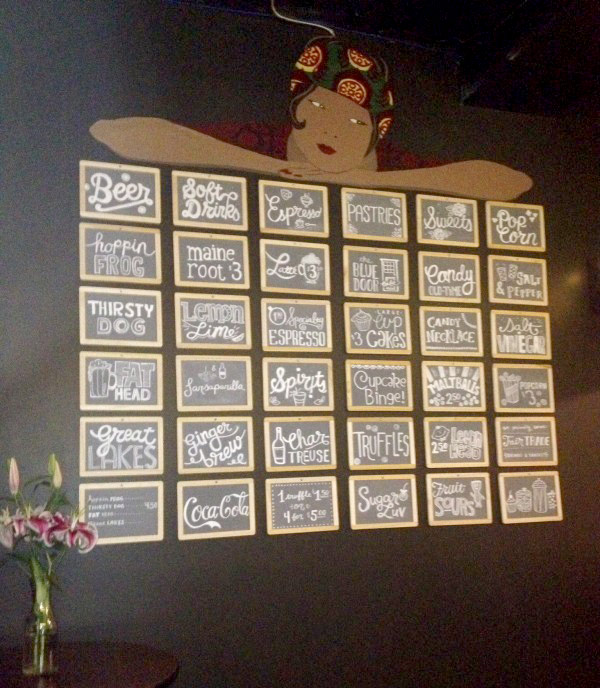 Beer
Soft
Drinks
Espresso
PASTRIES
Sweets
Pop
Corn
hoppin
FROG
maine
root $3
Latte $3
the
BLUE
DOOR
Candy
OLD-TIME
SALT
& PEPPER
THIRSTY
DOG
Lemon
Lime
Specialty
ESPRESSO
LARGE
Cup
$3 CAKES
CANDY
NECKLACE
Salt
VINEGAR
FAT
HEAD
Sarsaparilla
Spirits
Cupcake
Binge!
MALTBALLS
2.50
POPCORN
$3
Great
LAKES
Ginger
brew
Char
TREUSE
TRUFFLES
2.50
Fair TRADE
HOPPIN FROG
THIRSTY DOG
FAT HEAD
GREAT LAKES
4.50
Coca-Cola
1 truffle $1.50
4 for $5.00
Sugar
Luv
Fruit
SOURS